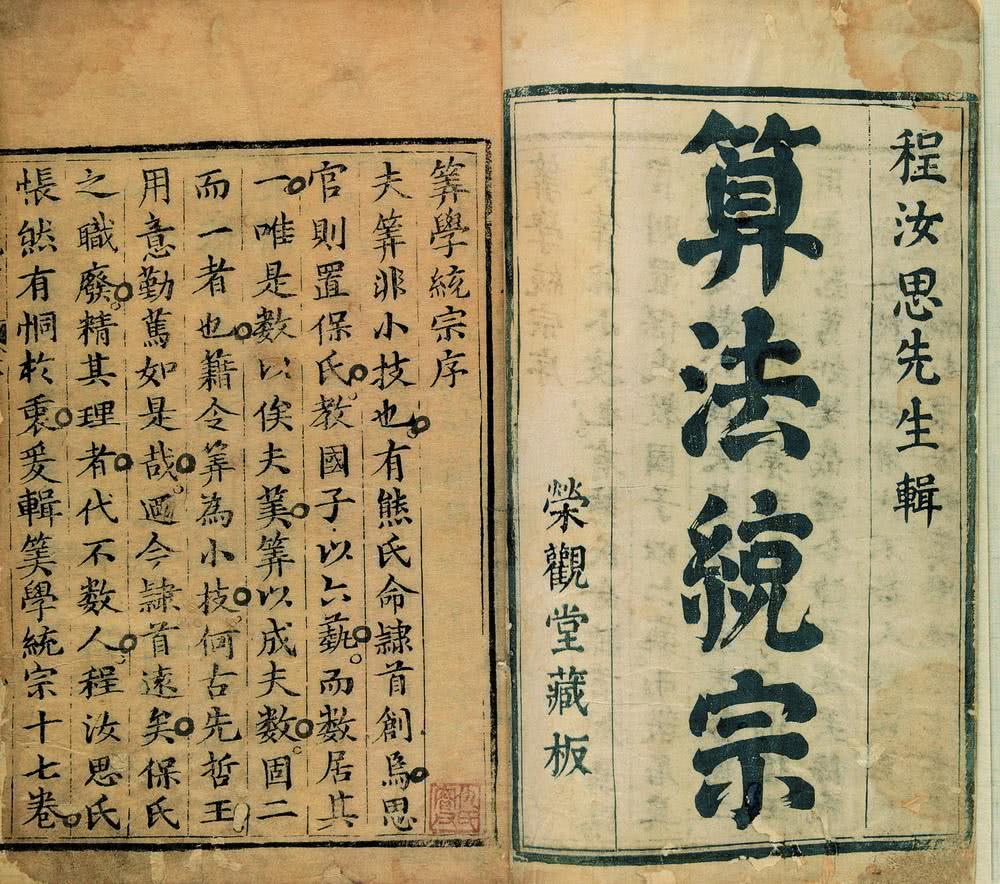 程汝思先生輯
算法統宗
榮觀堂藏板
筭學統宗序
夫筭非小技也有熊氏命隷首創爲思
官則置保氏教國子以六藝而數居其
一唯是數以俟夫筭筭以成夫數固二
而一者也籍令筭為小技何古先哲王
用意勤篤如是哉迺今隷首遠矣保氏
之職廢精其理者代不数人程汝思氏
悵然有恫於衷爰輯筭學統宗十七卷